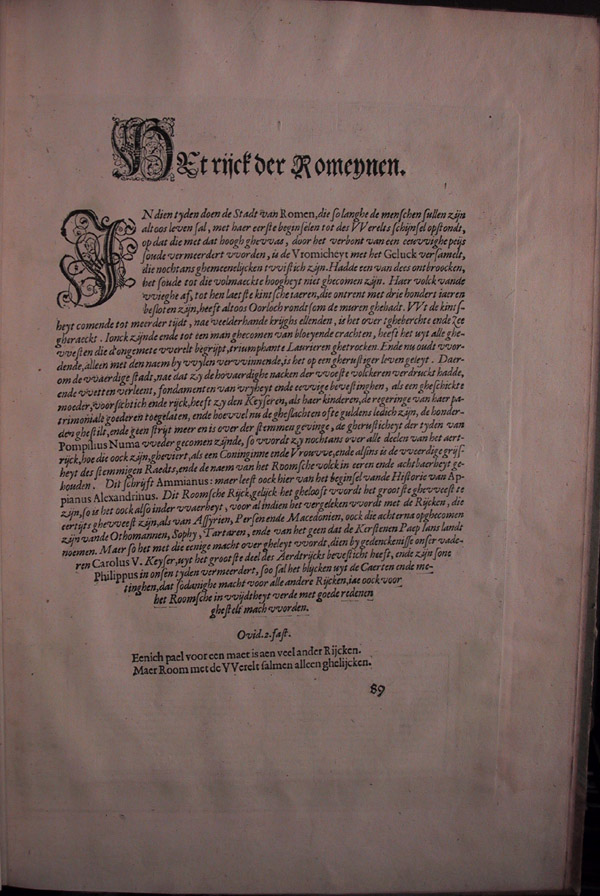 HEt rijck der Romeynen.
IN dien tyden doen de Stadt van Romen, die so langhe de menschen sullen zijn
altoos leven sal, met haer eerste beginselen tot des VVerelts schijnsel opstondt,
op dat die met dat hoogh ghewas, door het verbont van een eeuwighe peijs
soude vermeerdert vvorden, is de Vromicheyt met het Geluck versamelt,
die nochtans ghemeenelijcken tvvistich zijn. Hadde een van dees ontbroocken,
het soude tot die volmaeckte hoogheyt niet ghecomen zijn. Haer volck vande
vvieghe af, tot hen laetste kintsche iaeren, die ontrent met drie honderd iaeren
besloten zijn, heeft altoos Oorloch rondtsom de muren ghehadt. VVt de kints-
heyt comende tot meerder tijdt, nae veelderhande krijghs ellenden, is het over tgheberchte ende Zee
gheraeckt. Ionck zijnde ende tot een man ghecomen van bloeyende crachten, heeft het uyt alle ghe-
vvesten die d'ongemete vverelt begrijpt, triumphante Laurieren ghetrocken. Ende nu oudt vvor-
dende, alleen met den naem by vvylen vervvinnende, is het op een gheruster leven geleyt. Daer-
om de vvaerdige stadt, nae dat zy de hovaerdighe nacken der vvoeste volckeren verdruckt hadde,
ende vvetten verleent, fondamenten van vryheyt ende eevvige bevestinghen, als een gheschickte
moeder, voorsichtich ende rijck, heeft zy den Keyseren, als haer kinderen, de regeringe van haer pa-
trimoniale goederen toegelaten, ende hoevvel nu de gheslachten ofte guldens ledich zijn, de honder-
den ghestilt, ende geen strijt meer en is over der stemmen gevinge, de gherusticheyt der tyden van
Pompilius Numa vveder gecomen zijnde, so vvordt zy nochtans over alle deelen van het aert-
rijck, hoe die oock zijn, gheviert, als een Coninginne ende Vrouvve, ende alsins is de vveerdige grijs-
heyt des stemmigen Raedts, ende de naem van het Roomsche volck in eeren ende achtbaerheyt ge-
houden. Dit schrijft Ammianus: maer leest oock hier van het beginsel vande Historie van Ap-
pianus Alexandrinus. Dit Roomsche Rijck, gelijck het ghelooft vvordt het grootste ghevveest te
zijn, so is het oock also inder vvaerheyt, voor al indien het vergeleken vvordt met de Rijcken, die
eertijts ghevveest zijn, als van Assyrien, Persen ende Macedonien, oock die achterna opghecomen
zijn vande Othomannen, Sophy, Tartaren, ende van het geen dat de Kerstenen Paep Ians landt
noemen. Maer so het met die eenige macht over gheleyt vvordt, dien by gedenckenisse onser vade-
ren Carolus V. Keyser, uyt het grootste deel des Aerdtrijckt bevesticht heeft, ende zijn sone
Philippus in onsen tyden vermeerdert, soo sal het blijcken uyt de Caerten ende me-
tinghen, dat sodanighe macht voor alle andere Rijcken, iae oock voor
het Roomsche in vvijdtheyt verde met goede redenen
ghestelt mach vvorden.
Ovid. 2. fast.
Eenich pael voor een maet is aen veel ander Rijcken.
Maer Room met de VVerelt salmen alleen ghelijcken.
89